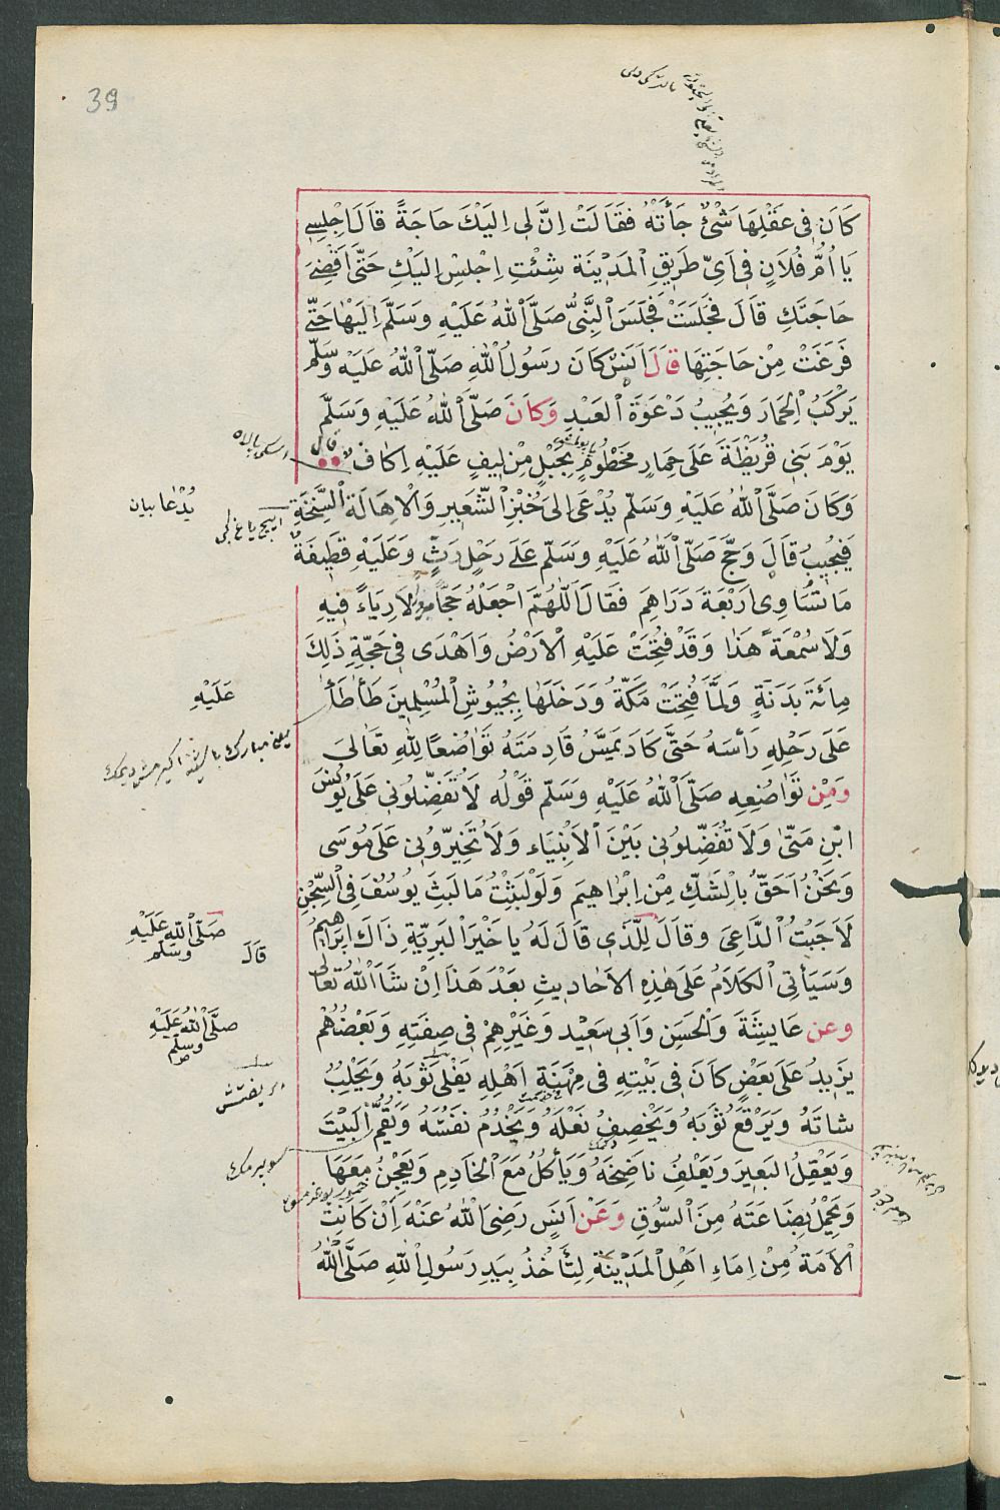 39
كَانَ فِى عَقْلِهَا شَىْءٌ جَأَتْهُ فَقَالَتْ اِنَّ لِى اِلَيْكَ حَاجَةً قَالَ اجْلِسِى
يَا اُمَّ فُلَانٍ فِى اَىِّ طَرِيقِ الْمَدِينَة شِئْتِ اِجْلِسْ اِلَيْكِ حَتّٰى اَقْضِىَ
حَاجَتَكِ قَالَ فَجَلَسَتْ فَجَلَسَ النَّبِىُّ صَلَّى اللّٰهُ عَلَيْهِ وَسَلَّمَ اِلَيْهَا حَتّٰى
فَرَغَتْ مِنْ حَاجَتِهَا قَالَ اَنَسٌ كَانَ رَسُولُ اللّٰهِ صَلَّى اللّٰهُ عَلَيْهِ وَسَلَّم
يَرْكَبُ الْحِمَارَ وَيُجِيبُ دَعْوَةَ الْعَبْدِ وَكَانَ صَلَّى اللّٰهُ عَلَيْهِ وَسَلَّمَ
يَوْمَ بَنِى قُرَيْظَةَ عَلَى حِمَارٍ مَخْطُومٍ بِحَبْلٍ مِنْ لِيفٍ عَلَيْهِ اِكَافٌ قال
وَكَانَ صَلَّى اللّٰهُ عَلَيْهِ وَسَلَّمَ يُدْعَى اِلَى خُبْزِ الشَّعِيرِ وَالْاِهَالَةِ السَّنِخَةِ
فَيُجِيبُ قَالَ وَحَجَّ صَلَّى اللّٰهُ عَلَيْهِ وَسَلَّم عَلَى رَحْلٍ رَثٍّ وَعَلَيْهِ قَطِيفَةٌ
مَا تُسَاوِى اَرْبَعَةَ دَرَاهِمَ فَقَالَ اَللّٰهُمَّ اجْعَلْهُ حَجًّا مبرورا لَا رِيَاءً فِيهِ
وَلَا سُمْعَةً هَذَا وَقَدْ فُتِحَتْ عَلَيْهِ الْاَرْضُ وَاَهْدَى فِى حَجَّةِ ذَلِكَ
مِائَةَ بَدَنَةٍ وَلَمَّا فُتِحَتْ مَكَّةُ وَدَخَلَهَا بِجُيُوشِ الْمُسْلِمِينَ طَأطَأَ
عَلَى رَحْلِهِ رَأْسَهُ حَتّٰى كَادَ يَمَسُّ قَادِمَتَهُ تَوَاضُعًا لِلّٰهِ تَعَالٰى
وَمِنْ تَوَاضُعِهِ صَلَّى اللّٰهُ عَلَيْهِ وَسَلَّم قَوْلُهُ لَا تُفَضِّلُونِى عَلَى يُونُسَ
ابْنِ مَتّٰى وَلَا تُفَضِّلُونِى بَيْنَ الْاَنْبِيَاءِ وَلَا تُخَيِّرُونِى عَلَى مُوسَى
وَنَحْنُ اَحَقُّ بِالشَّكِّ مِنْ اِبْرَاهِيمَ وَلَوْ لَبِثْتُ مَا لَبِثَ يُوسُفَ فِى السِّجْنِ
لَاَجَبْتُ الدَّاعِىَ وَقَالَ لِلَّذِى قَالَ لَهُ يَا خَيْرَ الْبَرِيَّةِ ذَاكَ اِبْرَاهِيمُ
وَسَيَأْتِى الْكَلَامُ عَلَى هٰذِهِ الْاَحَادِيثِ بَعْدَ هَذَا اِنْ شَآ اللّٰهُ تَعَالٰى
وعن عَايِشَةَ وَالْحَسَنِ وَاَبِى سَعِيدٍ وَغَيْرِهِمْ فِى صِفَتِهِ وَبَعْضُهُمْ
يَزِيدُ عَلَى بَعْضٍ كَانَ فِى بَيْتِهِ فِى مِهْنَةِ اَهْلِهِ يَفْلِى ثَوْبَهُ وَيَحْلِبُ
شَاتَهُ وَيَرْقَعُ ثَوْبَهُ وَيَخْصِفُ نَعْلَهُ وَيَخْدُمُ نَفْسَهُ وَيَقُمُّ الْبَيْتَ
وَيَعْقِلُ الْبَعِيرَ وَيَعْلِفُ نَاضِحَهُ وَيَأْكُلُ مَعَ الْخَادِمِ وَيَعْجِنُ مَعَهَا
وَيَحْمِلُ بِضَاعَتَهُ مِنَ السُّوقِ وَعَنْ اَنَسٍ رَضِىَ اللّٰهُ عَنْهُ اِنْ كَانَتِ
الْاَمَةُ مِنْ اِمَاءِ اَهْلِ الْمَدِينَةِ لَتَأْخُذُ بِيَدِ رَسُولِ اللّٰهِ صَلَّى اللّٰهُ
يُدْعَا بيان
عَلَيْهِ
صَلَّى اللّٰهِ عَلَيْهِ وسلم
قَالَ
صَلَّى اللّٰهُ عَلَيْهِ وسلم
سوپرمك